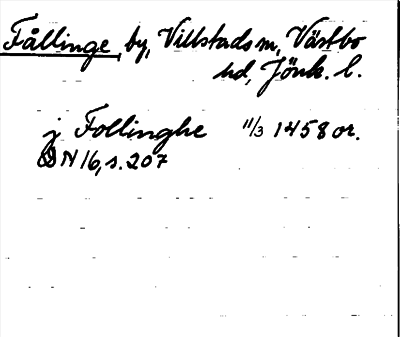 Fållinge, by, Villstads sn, Västbo
hd, Jönk. l.
j Follinghe 11/3 1458 or.
DN 16, s. 207